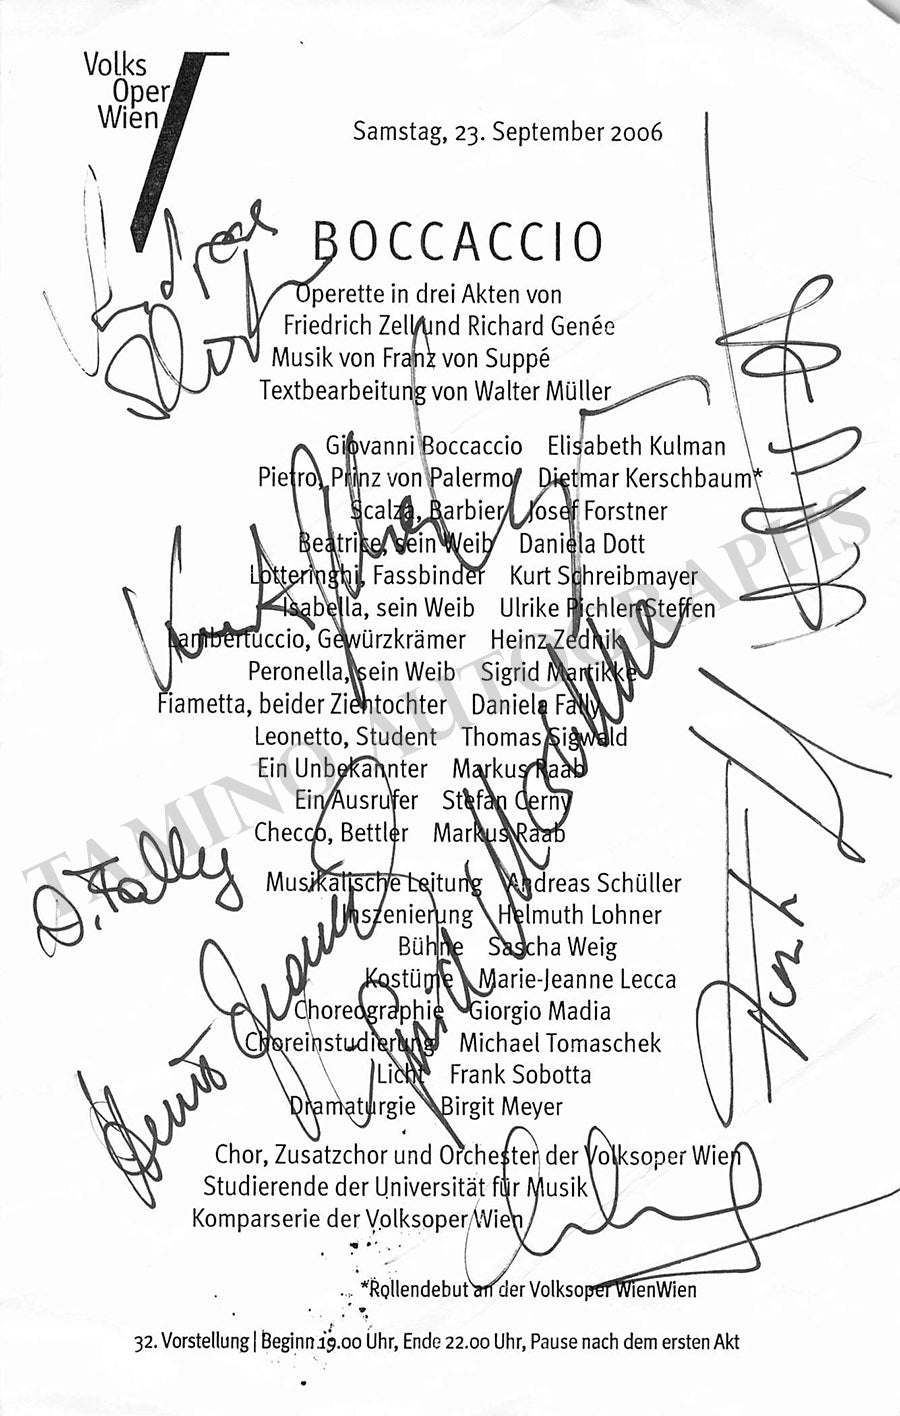 Volks
Oper
Wien
Samstag, 23. September 2006
BOCCACCIO
Operette in drei Akten von
Friedrich Zell und Richard Genée
Musik von Franz von Suppé
Textbearbeitung von Walter Müller
Giovanni Boccaccio Elisabeth Kulman
Pietro, Prinz von Palermo Dietmar Kerschbaum*
Scalza, Barbier Josef Forstner
Beatrice, sein Weib Daniela Dott
Lotteringhi, Fassbinder Kurt Schreibmayer
Isabella, sein Weib Ulrike Pichler-Steffen
Lambertuccio, Gewürzkrämer Heinz Zednik
Peronella, sein Weib Sigrid Martikke
Fiametta, beider Ziehtochter Daniela Fally
Leonetto, Student Thomas Sigwald
Ein Unbekannter Markus Raab
Ein Ausrufer Stefan Cerny
Checco, Bettler Markus Raab
D. Fally
Musikalische Leitung Andreas Schüller
Inszenierung Helmuth Lohner
Bühne Sascha Weig
Kostüme Marie-Jeanne Lecca
Choreographie Giorgio Madia
Choreinstudierung Michael Tomaschek
Licht Frank Sobotta
Dramaturgie Birgit Meyer
Chor, Zusatzchor und Orchester der Volksoper Wien
Studierende der Universität für Musik
Komparserie der Volksoper Wien
*Rollendebut an der Volksoper WienWien
32. Vorstellung | Beginn 19.00 Uhr, Ende 22.00 Uhr, Pause nach dem ersten Akt
TAMINO AUTOGRAPHS